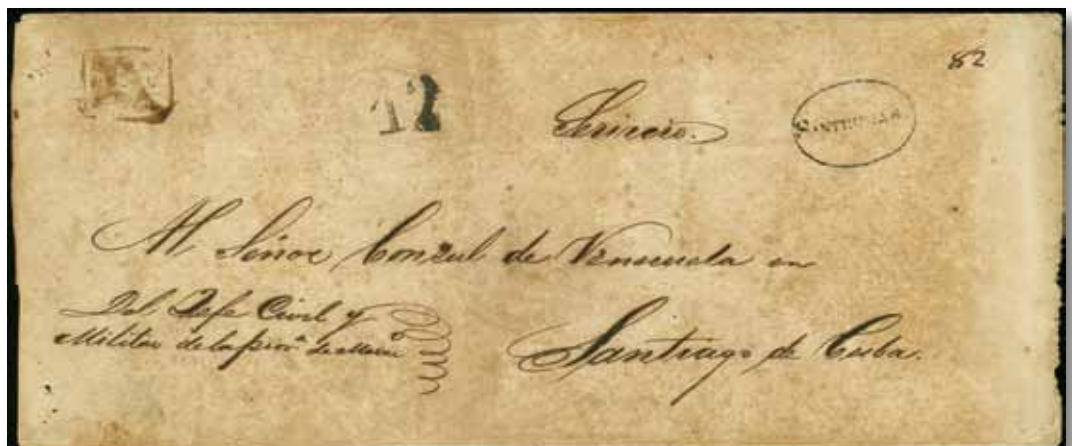 82
12
Servicio.
S. THOMAS
Al Señor Consul de Venezuela en
Del Jefe Civil y
Militar de la prov.ª de
Santiago de Cuba.